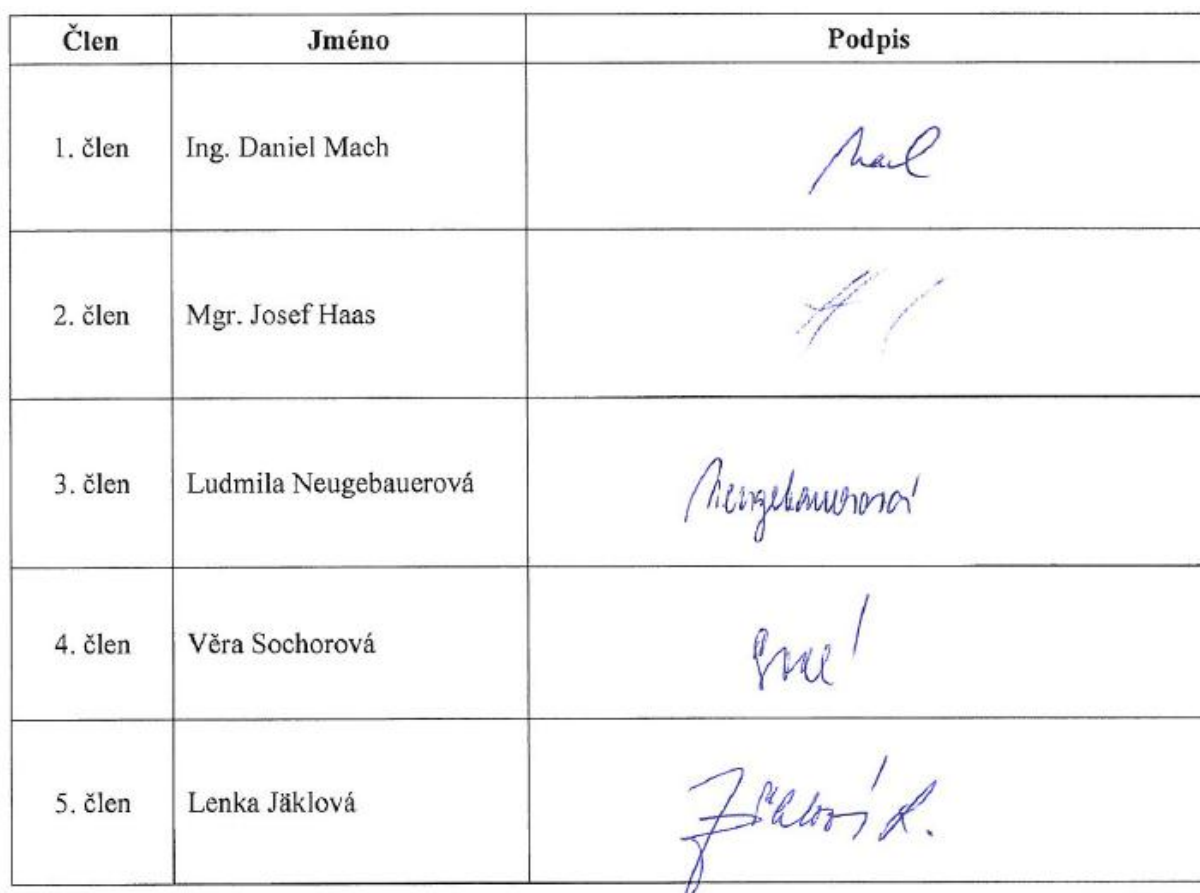 Člen Jméno Podpis
1. člen Ing. Daniel Mach
2. člen Mgr. Josef Haas
3. člen Ludmila Neugebauerová Neugebauerová
4. člen Věra Sochorová
5. člen Lenka Jäklová Jäklová L.